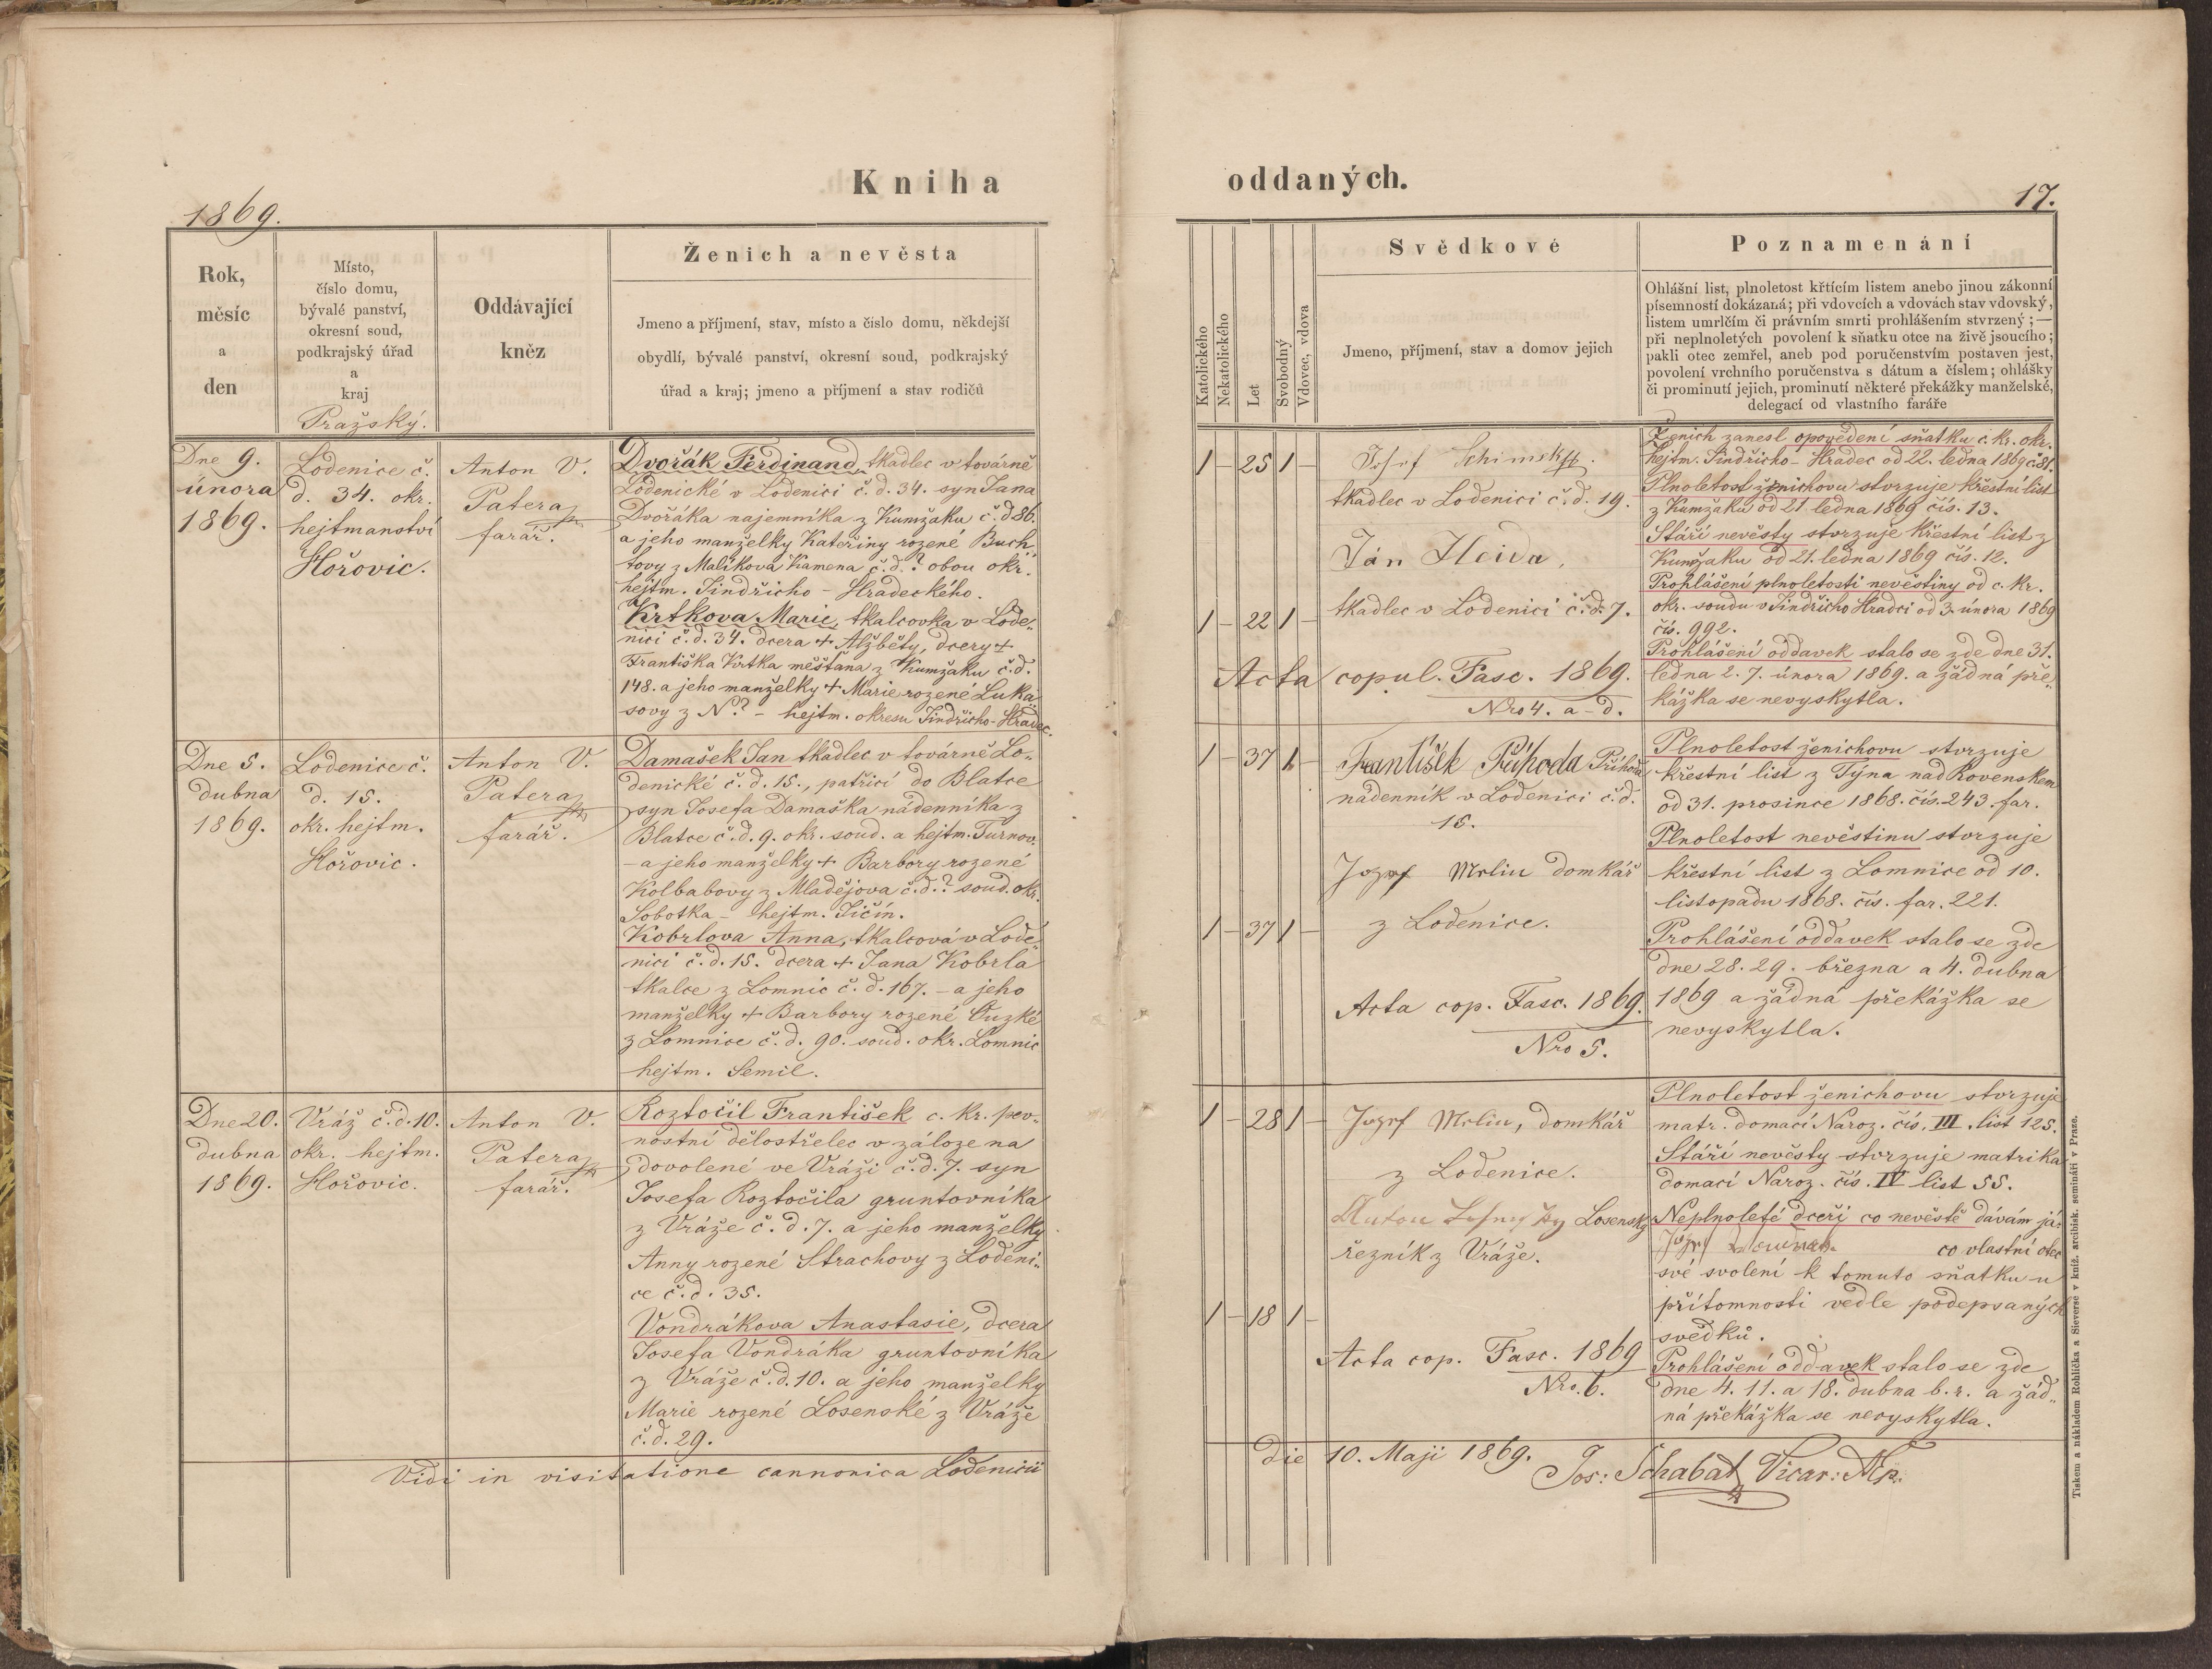 Kniha
1869.
Rok,
měsíc
a
den
Místo,
číslo domu,
bývalé panství,
okresní soud,
podkrajský úřad
a
kraj
Pražský.
Oddávající
kněz
Ženich a nevěsta
Jmeno a příjmení, stav, místo a číslo domu, někdejší
obydlí, bývalé panství, okresní soud, podkrajský
úřad a kraj; jmeno a příjmení a stav rodičů
Dne 9.
února
1869.
Lodenice č.
d. 34. okr.
hejtmanství
Hořovic.
Anton V.
Patera
farář.
Dvořák Ferdinand, tkadlec v továrně
Lodenické v Lodenici č. d. 34. syn Jana
Dvořáka najemníka z Kumžaku č. d 86.
a jeho manželky Kateřiny rozené Buch„
tovy z Malíkova Kamena č. d. ? obou okr.
hejtm. Jindřicho - Hradeckého.
Krtkova Marie, tkalcovka v Lode„
nici č. d. 34. dcera + Alžběty, dcery +
Františka Krtka měšťana z Kumžaku č. d.
148. a jeho manželky + Marie rozené Luka„
sovy z N.? - hejtm. okresu Jindřicho-Hradec.
Dne 5.
dubna
1869.
Lodenice č.
d. 15.
okr. hejtm.
Hořovic.
Anton V.
Patera
farář.
Damašek Jan tkadlec v továrně Lo„
denické č. d. 15., patřící do Blatce
syn Josefa Damaška nádenníka z
Blatce č. d. 9. okr. soud. a hejtm. Turnov.
- a jeho manželky + Barbory rozené
Kolbabovy z Mladějova č. d.? soud. okr.
Sobotka - hejtm. Jičín.
Kobrlova Anna, tkalcová v Lode„
nici č. d. 15. dcera + Jana Kobrla
tkalce z Lomnic č. d. 167. - a jeho
manželky + Barbory rozené
z Lomnice č. d. 90. soud. okr. Lomnic
hejtm. Semil.
Dne 20.
dubna
1869.
Vráž č. d. 10.
okr. hejtm.
Hořovic.
Anton V.
Patera
farář.
Roztočil František c. kr. pev„
nostní dělostřelec v záloze na
dovolené ve Vráži č. d. 7. syn
Josefa Roztočila gruntovníka
z Vráže č. d. 7. a jeho manželky
Anny rozené Strachovy z Lodeni„
ce č. d. 35.
Vondrákova Anastasie, dcera
Josefa Vondráka gruntovníka
z Vráže č. d. 10. a jeho manželky
Marie rozené Losenské z Vráže
č. d. 29.
Vidi in visitatione cannonica Lodenicii
oddaných.
17.
Katolického
Nekatolického
Let
Svobodný
Vdovec, vdova
Svědkové
Jmeno, příjmení, stav a domov jejich
Poznamenání
Ohlášní list, plnoletost křtícím listem anebo jinou zákonní
písemností dokázaná; při vdovcích a vdovách stav vdovský,
listem umrlčím či právním smrti prohlášením stvrzený ; —
při neplnoletých povolení k sňatku otce na živě jsoucího;
pakli otec zemřel, aneb pod poručenstvím postaven jest,
povolení vrchního poručenstva s dátum a číslem; ohlášky
či prominutí jejich, prominutí některé překážky manželské,
delegací od vlastního faráře
1 - 25 1 -
Josef
tkadlec v Lodenici č. d. 19.
Ján Heida,
1 - 22 1 -
tkadlec v Lodenici č. d. 7.
Acta copul. Fasc. 1869.
Nro 4. a - d.
Ženich zanesl opovědení sňatku c. kr. okr.
hejtm. Jindřicho - Hradec od 22. ledna 1869 č 81.
Plnoletost ženichovu stvrzuje křestní list
z Kumžaku od 21 ledna 1869 čís. 13.
Stáří nevěsty stvrzuje křestní list z
Kumžaku od 21. ledna 1869 čís. 12.
Prohlášení plnoletosti nevěstiny od c. kr.
okr. soudu v Jindřicho Hradci od 3. února 1869
čís. 992.
Prohlášení oddavek stalo se zde dne 31.
ledna 2. 7. února 1869. a žádná pře„
kážka se nevyskytla.
1 - 37 1 -
František Příhoda Příhoda
nádenník v Lodenici č. d.
15.
Jozef Mrlin domkář
1 - 37 1 -
z Lodenice.
Acta cop. Fasc. 1869.
Nro 5.
Plnoletost ženichovu stvrzuje
křestní list z Týna nad Rovenskem
od 31. prosince 1868. čís. 243. far.
Plnoletost nevěstinu stvrzuje
křestní list z Lomnice od 10.
listopadu 1868. čís. far. 221.
Prohlášení oddavek stalo se zde
dne 28. 29. března a 4. dubna
1869 a žádná překážka se
nevyskytla.
1 - 28 1 -
Jozef Mrlin, domkář
z Lodenice.
Anton Losensky
řezník z Vráže.
1 - 18 1 -
Acta cop. Fasc. 1869
Nro. 6.
Plnoletost ženichovu stvrzuje
matr. domací Naroz. čís. III. list 125.
Stáří nevěsty stvrzuje matrika
domací Naroz. čís. IV list 55.
Neplnoleté dceři co nevěstě dávám já„
co vlastní otec
své svolení k tomuto sňatku u
přítomnosti vedle podepsaných
svědků.
Prohlášení oddavek stalo se zde
dne 4. 11. a 18. dubna b. r. a žád„
ná překážka se nevyskytla.
die 10. Maji 1869.
Jos: Schabat Vicar: Mp.
Tiskem a nákladem Rohlíčka a Sieverse v kníž. arcibisk. semináři v Praze.